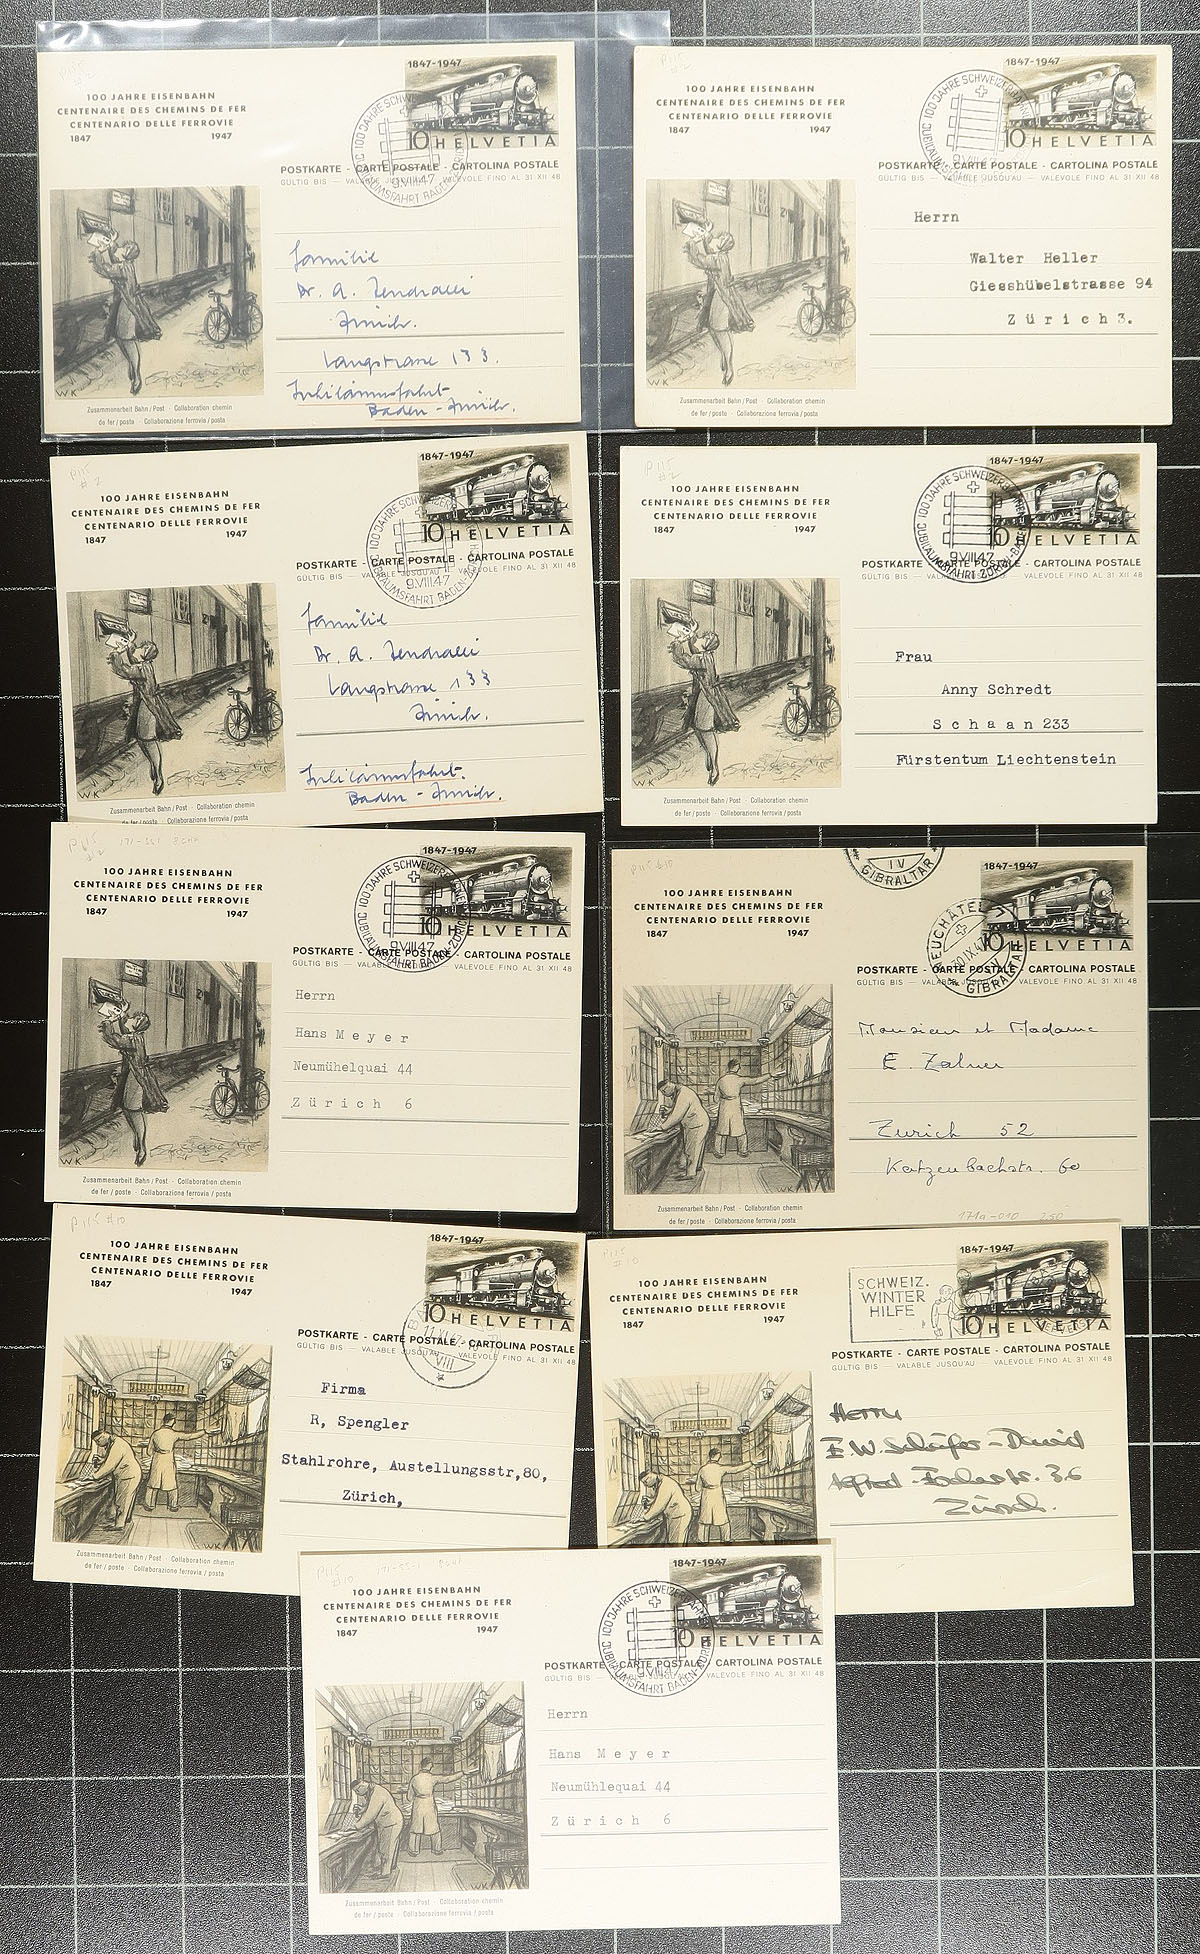 1847-1947
100 JAHRE EISENBAHN
CENTENAIRE DES CHEMINS DE FER
CENTENARIO DELLE FERROVIE
1847 1947
10 HELVETIA
POSTKARTE - CARTE POSTALE - CARTOLINA POSTALE
GÜLTIG BIS — VALABLE JUSQU'AU — VALEVOLE FINO AL 31 XII 48
9.VIII.47
Familie
Dr. A. Zendralli
Zürich.
Langstrasse 133.
Jubiläumsfahrt
Baden - Zürich.
WK
Zusammenarbeit Bahn / Post · Collaboration chemin
de fer / poste · Collaborazione ferrovia / posta
1847-1947
100 JAHRE EISENBAHN
CENTENAIRE DES CHEMINS DE FER
CENTENARIO DELLE FERROVIE
1847 1947
10 HELVETIA
POSTKARTE - CARTE POSTALE - CARTOLINA POSTALE
GÜLTIG BIS — VALABLE JUSQU'AU — VALEVOLE FINO AL 31 XII 48
9.VIII.47
Herrn
Walter Heller
Giesshübelstrasse 94
Zürich 3.
WK
Zusammenarbeit Bahn / Post · Collaboration chemin
de fer / poste · Collaborazione ferrovia / posta
P115
#2
1847-1947
100 JAHRE EISENBAHN
CENTENAIRE DES CHEMINS DE FER
CENTENARIO DELLE FERROVIE
1847 1947
10 HELVETIA
POSTKARTE - CARTE POSTALE - CARTOLINA POSTALE
GÜLTIG BIS — VALABLE JUSQU'AU — VALEVOLE FINO AL 31 XII 48
JUBILÄUMSFAHRT BADEN-ZÜRICH 100 JAHRE SCHWEIZER
9.VIII.47
Familie
Dr. A. Zendralli
Langstrasse 133
Zürich.
Jubiläumsfahrt.
Baden - Zürich.
WK
Zusammenarbeit Bahn / Post · Collaboration chemin
de fer / poste · Collaborazione ferrovia / posta
P115
#2
1847-1947
100 JAHRE EISENBAHN
CENTENAIRE DES CHEMINS DE FER
CENTENARIO DELLE FERROVIE
1847 1947
10 HELVETIA
POSTKARTE - CARTE POSTALE - CARTOLINA POSTALE
GÜLTIG BIS — VALABLE JUSQU'AU — VALEVOLE FINO AL 31 XII 48
100 JAHRE SCHWEIZER BAHNEN JUBILÄUMSFAHRT ZÜRICH-BADEN
9.VIII.47
Frau
Anny Schredt
Schaan 233
Fürstentum Liechtenstein
WK
Zusammenarbeit Bahn / Post · Collaboration chemin
de fer / poste · Collaborazione ferrovia / posta
P115
#2
1847-1947
100 JAHRE EISENBAHN
CENTENAIRE DES CHEMINS DE FER
CENTENARIO DELLE FERROVIE
1847 1947
10 HELVETIA
POSTKARTE - CARTE POSTALE - CARTOLINA POSTALE
GÜLTIG BIS — VALABLE JUSQU'AU — VALEVOLE FINO AL 31 XII 48
100 JAHRE SCHWEIZER BAHNEN JUBILÄUMSFAHRT BADEN-ZÜRICH
9.VIII.47
Herrn
Hans Meyer
Neumühelquai 44
Zürich 6
WK
Zusammenarbeit Bahn / Post · Collaboration chemin
de fer / poste · Collaborazione ferrovia / posta
P115 #10
IV
GIBRALTAR
1847-1947
100 JAHRE EISENBAHN
CENTENAIRE DES CHEMINS DE FER
CENTENARIO DELLE FERROVIE
1847 1947
10 HELVETIA
NEUCHÂTEL
GIBRALTAR
POSTKARTE - CARTE POSTALE - CARTOLINA POSTALE
GÜLTIG BIS — VALABLE JUSQU'AU — VALEVOLE FINO AL 31 XII 48
Monsieur et Madame
E. Zahner
Zurich 52
Katzenbachstr. 60
WK
Zusammenarbeit Bahn / Post · Collaboration chemin
de fer / poste · Collaborazione ferrovia / posta
171a-010 250
P115 #10
1847-1947
100 JAHRE EISENBAHN
CENTENAIRE DES CHEMINS DE FER
CENTENARIO DELLE FERROVIE
1847 1947
10 HELVETIA
POSTKARTE - CARTE POSTALE - CARTOLINA POSTALE
GÜLTIG BIS — VALABLE JUSQU'AU — VALEVOLE FINO AL 31 XII 48
VIII
Firma
R, Spengler
Stahlrohre, Austellungsstr,80,
Zürich,
WK
Zusammenarbeit Bahn / Post · Collaboration chemin
de fer / poste · Collaborazione ferrovia / posta
P115
#10
1847-1947
100 JAHRE EISENBAHN
CENTENAIRE DES CHEMINS DE FER
CENTENARIO DELLE FERROVIE
1847 1947
SCHWEIZ.
WINTER
HILFE
10 HELVETIA
POSTKARTE - CARTE POSTALE - CARTOLINA POSTALE
GÜLTIG BIS — VALABLE JUSQU'AU — VALEVOLE FINO AL 31 XII 48
Herrn
E.W. Schäfer-David
Alfred-Escherstr. 36
Zürich.
P115
#10
1847-1947
100 JAHRE EISENBAHN
CENTENAIRE DES CHEMINS DE FER
CENTENARIO DELLE FERROVIE
1847 1947
10 HELVETIA
POSTKARTE - CARTE POSTALE - CARTOLINA POSTALE
GÜLTIG BIS — VALABLE JUSQU'AU — VALEVOLE FINO AL 31 XII 48
100 JAHRE SCHWEIZER BAHNEN JUBILÄUMSFAHRT BADEN-ZÜRICH
9.VIII.47
Herrn
Hans Meyer
Neumühlequai 44
Zürich 6
WK
Zusammenarbeit Bahn / Post · Collaboration chemin
de fer / poste · Collaborazione ferrovia / posta